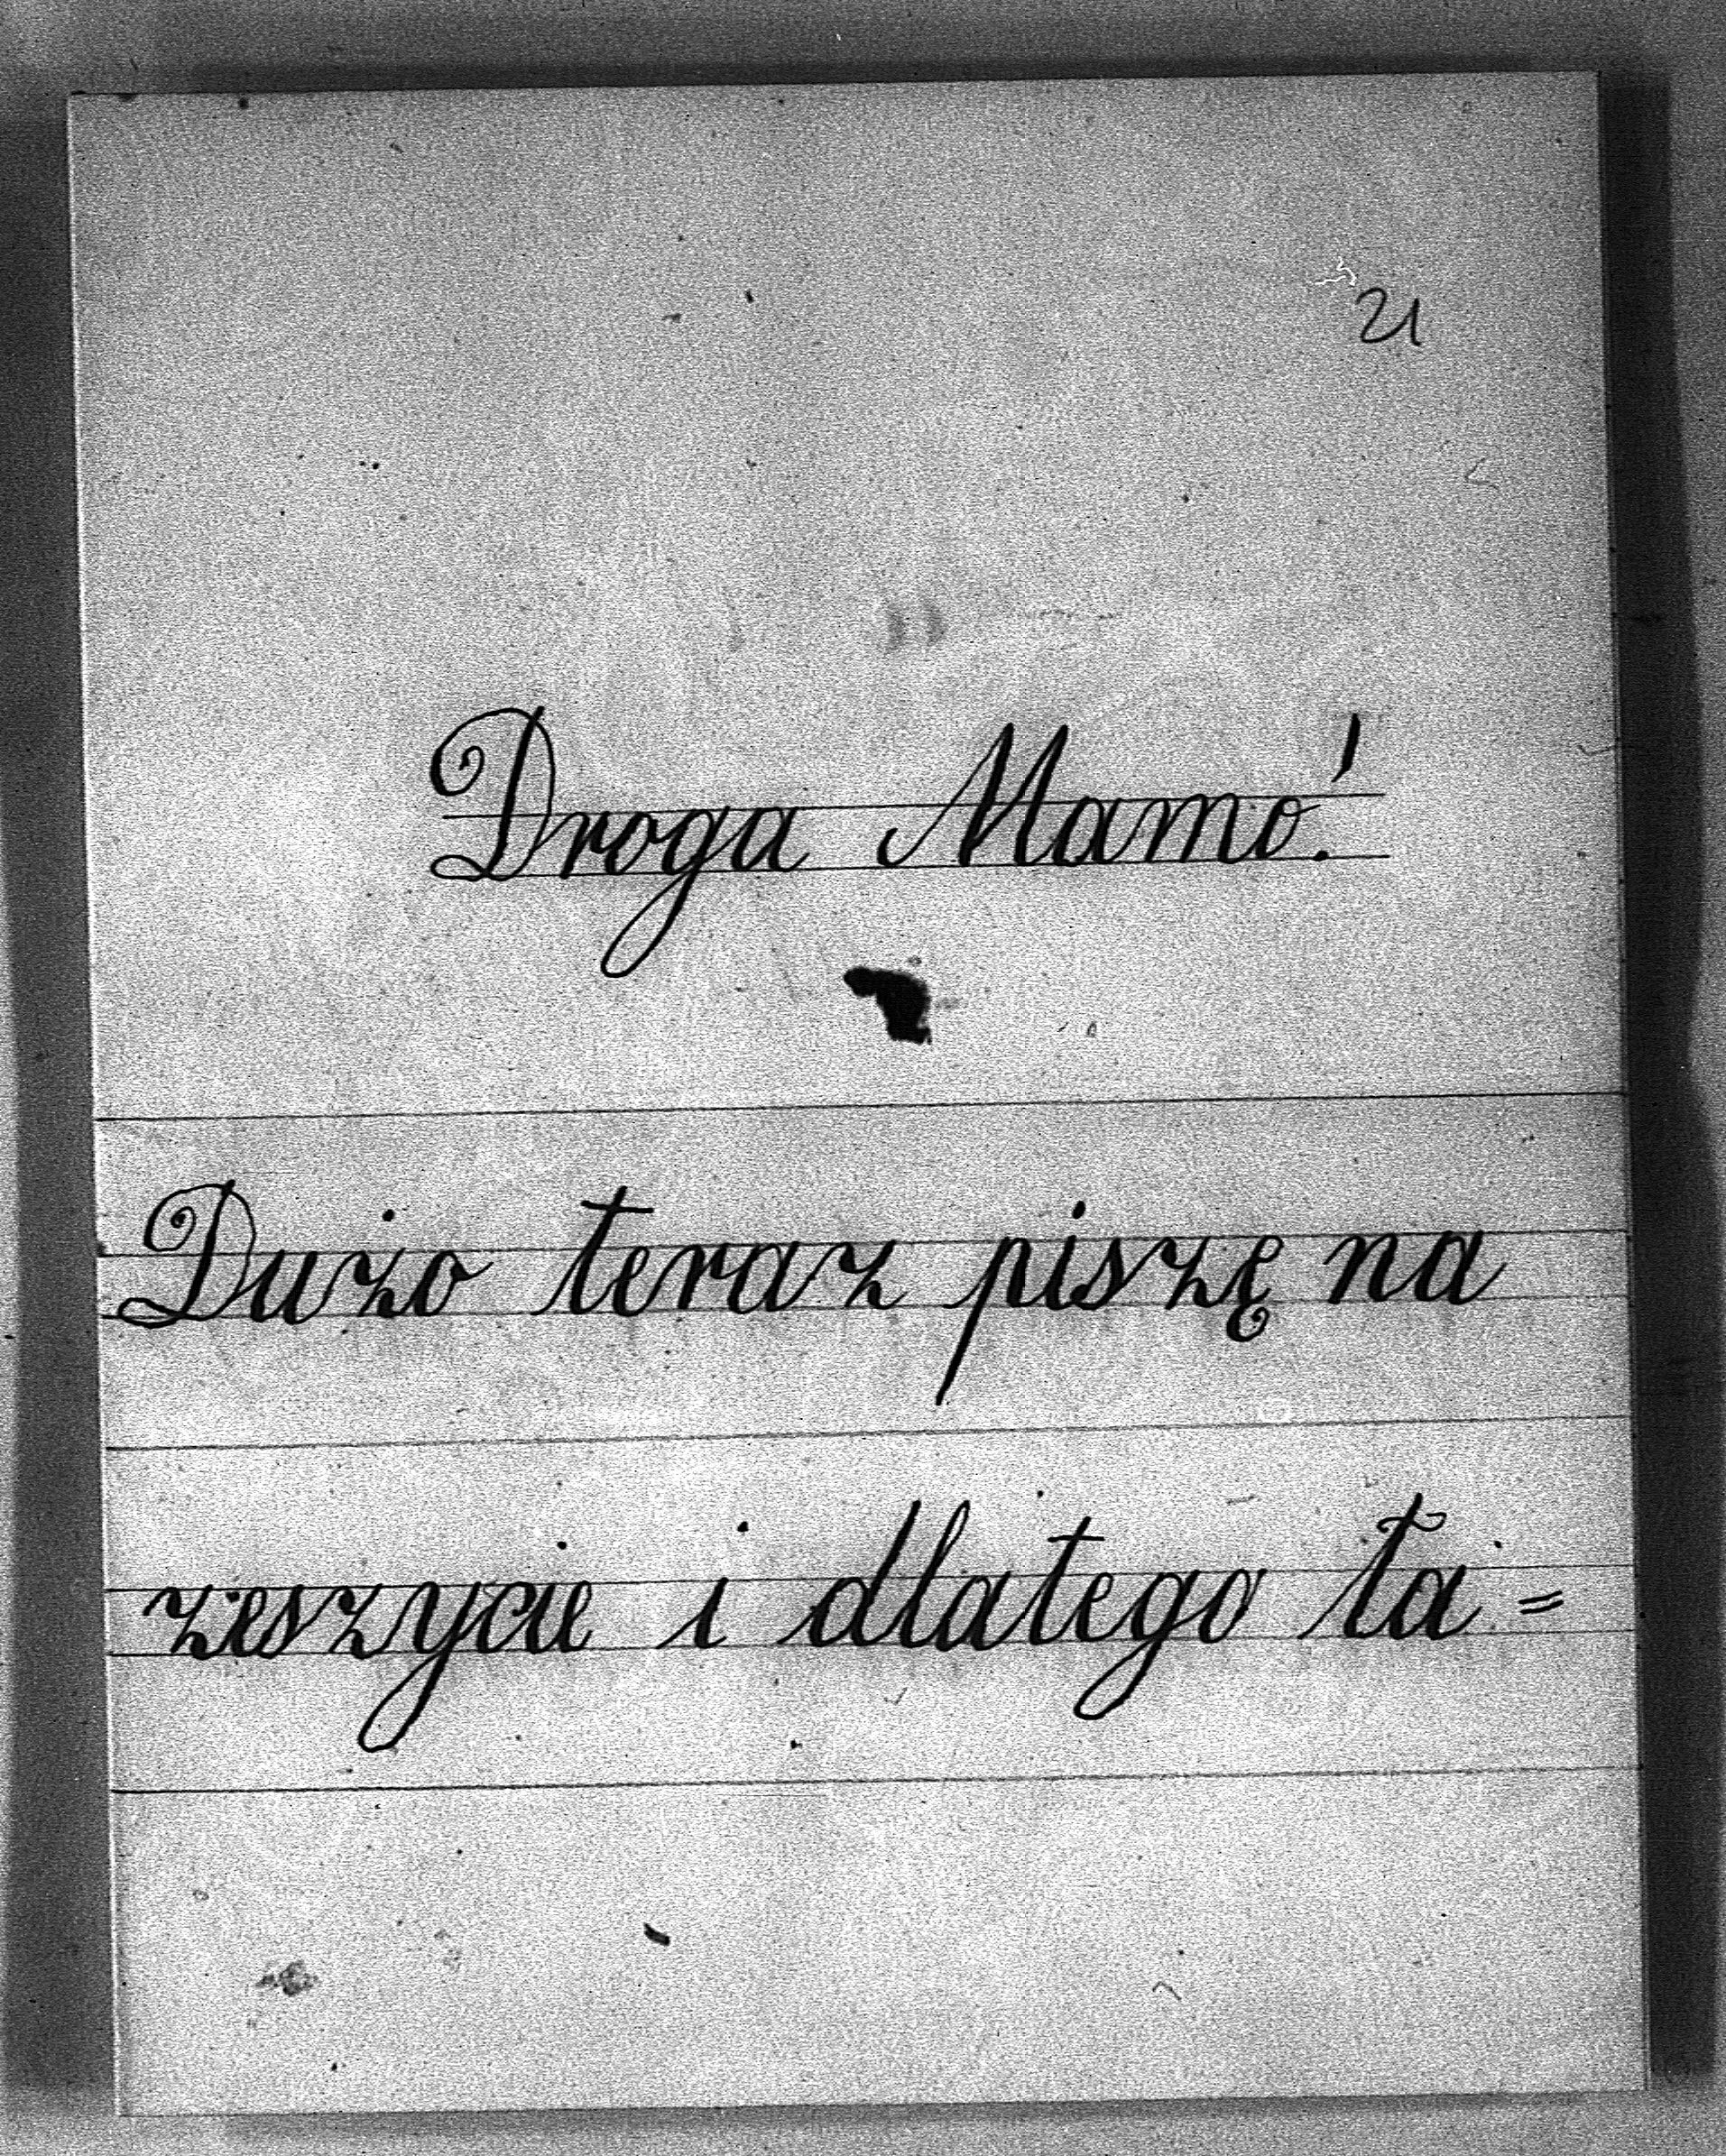 21
Droga Mamo!
Dużo teraz piszę na
zeszycie i dlatego ta=